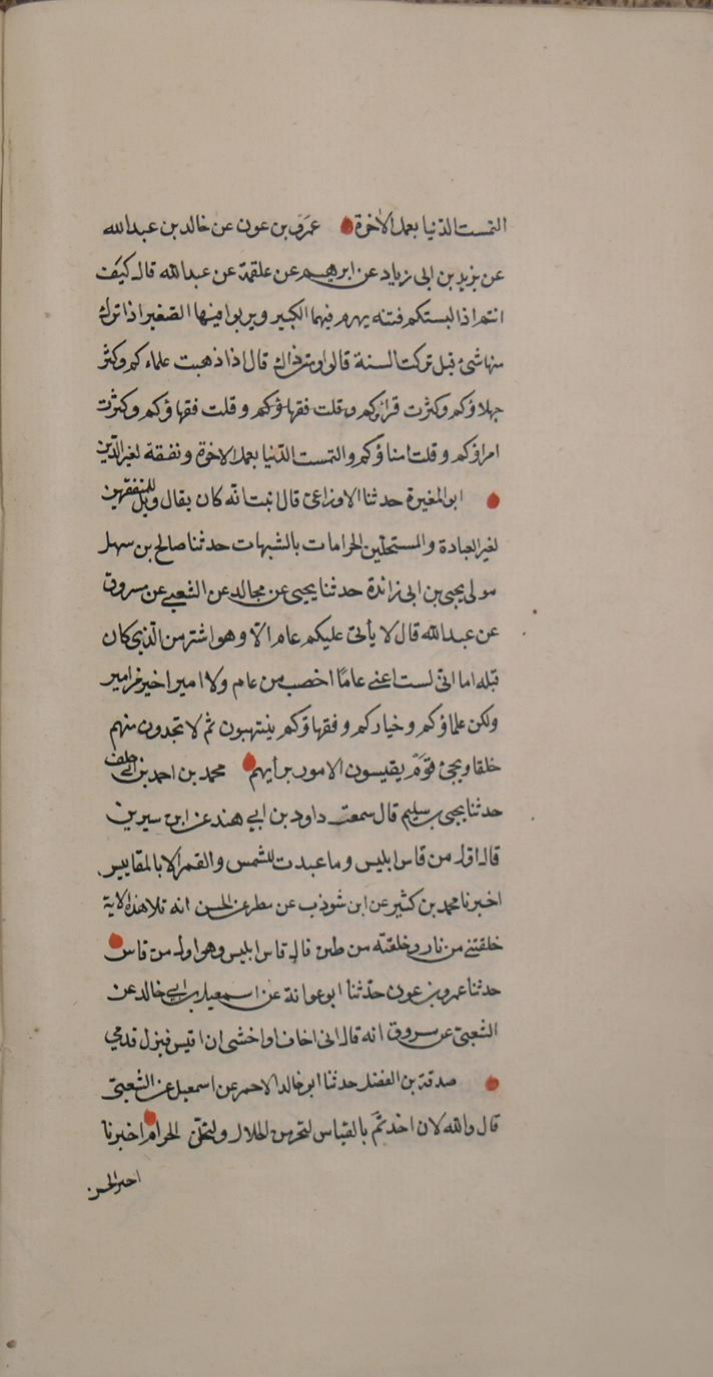 التمست الدنيا بعمل الاخرة عمرو بن عون عن خالد بن عبدالله
عن يزيد بن ابى زياد عن ابرهيم عن علقمة عن عبدالله قال كيف
انتم اذا لبستكم فتنه يهرم فيها الكبير ويربوا فيها الصغير اذا ترك
منها شئ قيل تركت السنة قالوا ومتى ذاك قال اذا ذهبت علماءكم وكثر
جهلاؤكم وكثرت قراءكم وقلت فقهاؤكم وقلت فقهاؤكم وكثرت
امراؤكم وقلت امناؤكم والتمست الدنيا بعمل الاخرة وتفقه لغير الدين
ابو المغيرة حدثنا الاوزاعى قال انبت انه كان يقال ويل للمتفقهين
لغير العبادة والمستحلين الحرامات بالشبهات حدثنا صالح بن سهل
مولى يحيى بن ابى زائدة حدثنا يحيى عن مجالد عن الشعبى عن مسروق
عن عبدالله قال لا يأتى عليكم عام الا وهو اشتر من الذى كان
قبله اما انى لست اعنى عامًا اخصب من عام ولا امير اخير من امير
ولكن علماؤكم وخياركم وفقهاؤكم ينتهبون ثم لا تجدون منهم
خلفا ويجئ قوم يقيسون الامور برأيهم محمد بن احمد بن ابى خلف
حدثنا يحيى بن سليم قال سمعت داود بن ابى هند عن ابن سيرين
قال اول من قاس ابليس وما عبدت للشمس والقمر الا بالمقاييس
اخبرنا محمد بن كثير عن ابن شوذب عن مطر عن الحسن انه تلا هذه الاية
خلقتنى من نار وخلقته من طين قال قاس ابليس وهو اول من قاس
حدثنا عمرو بن عون حدثنا ابو عوانة عن اسمعيل بن ابى خالد عن
الشعبى عن مسروق انه قال انى اخاف واخشى ان اقيس فتزل قدمى
صدقة بن الفضل حدثنا ابو خالد الاحمر عن اسمعيل عن الشعبى
قال والله لان اخذتم بالقياس لتحرمن الحلال ولتحلن الحرام اخبرنا
اخبر الحسن